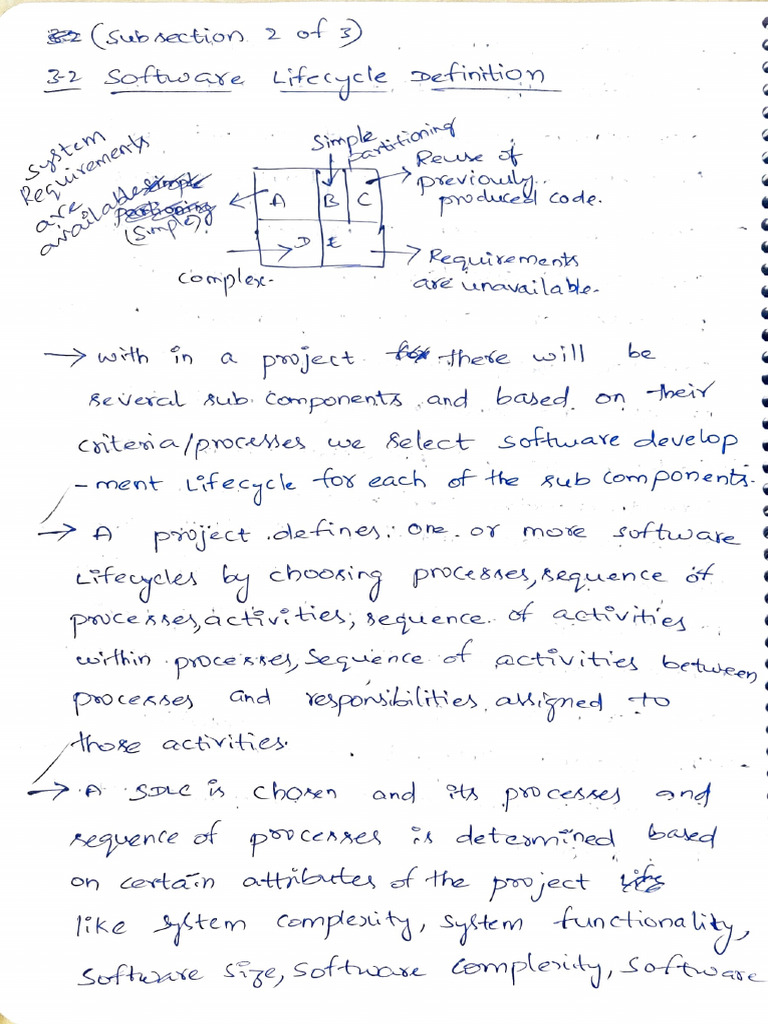 (Subsection 2 of 3)
3.2 Software Lifecycle Definition
System
Requirements
are
available
(Simple)
Simple
partitioning
A B C
D E
Reuse of
previously
produced code.
complex.
Requirements
are unavailable.
→ with in a project there will be
several sub components and based on their
criteria/processes we select software develop
-ment Lifecycle for each of the sub components.
→ A project defines one or more software
Lifecycles by choosing processes, sequence of
processes, activities, sequence of activities
within processes, Sequence of activities between
processes and responsibilities assigned to
those activities.
→ A SDLC is chosen and its processes and
sequence of processes is determined based
on certain attributes of the project
like system complexity, system functionality,
Software size, software complexity, software